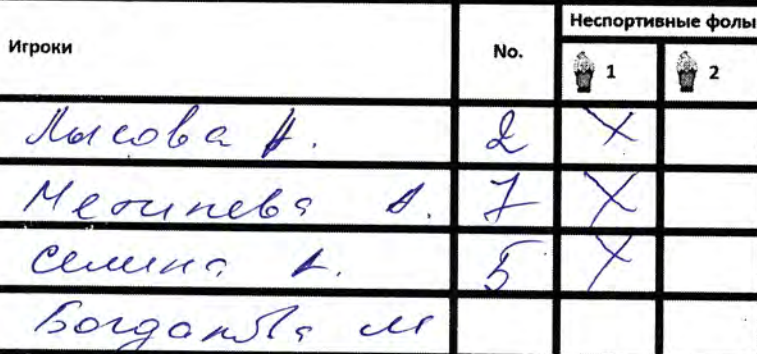 Игроки No. Неспортивные фолы
1 2
Лысова А. 2 X
7 X
Селина А. 5 X
Богданова М